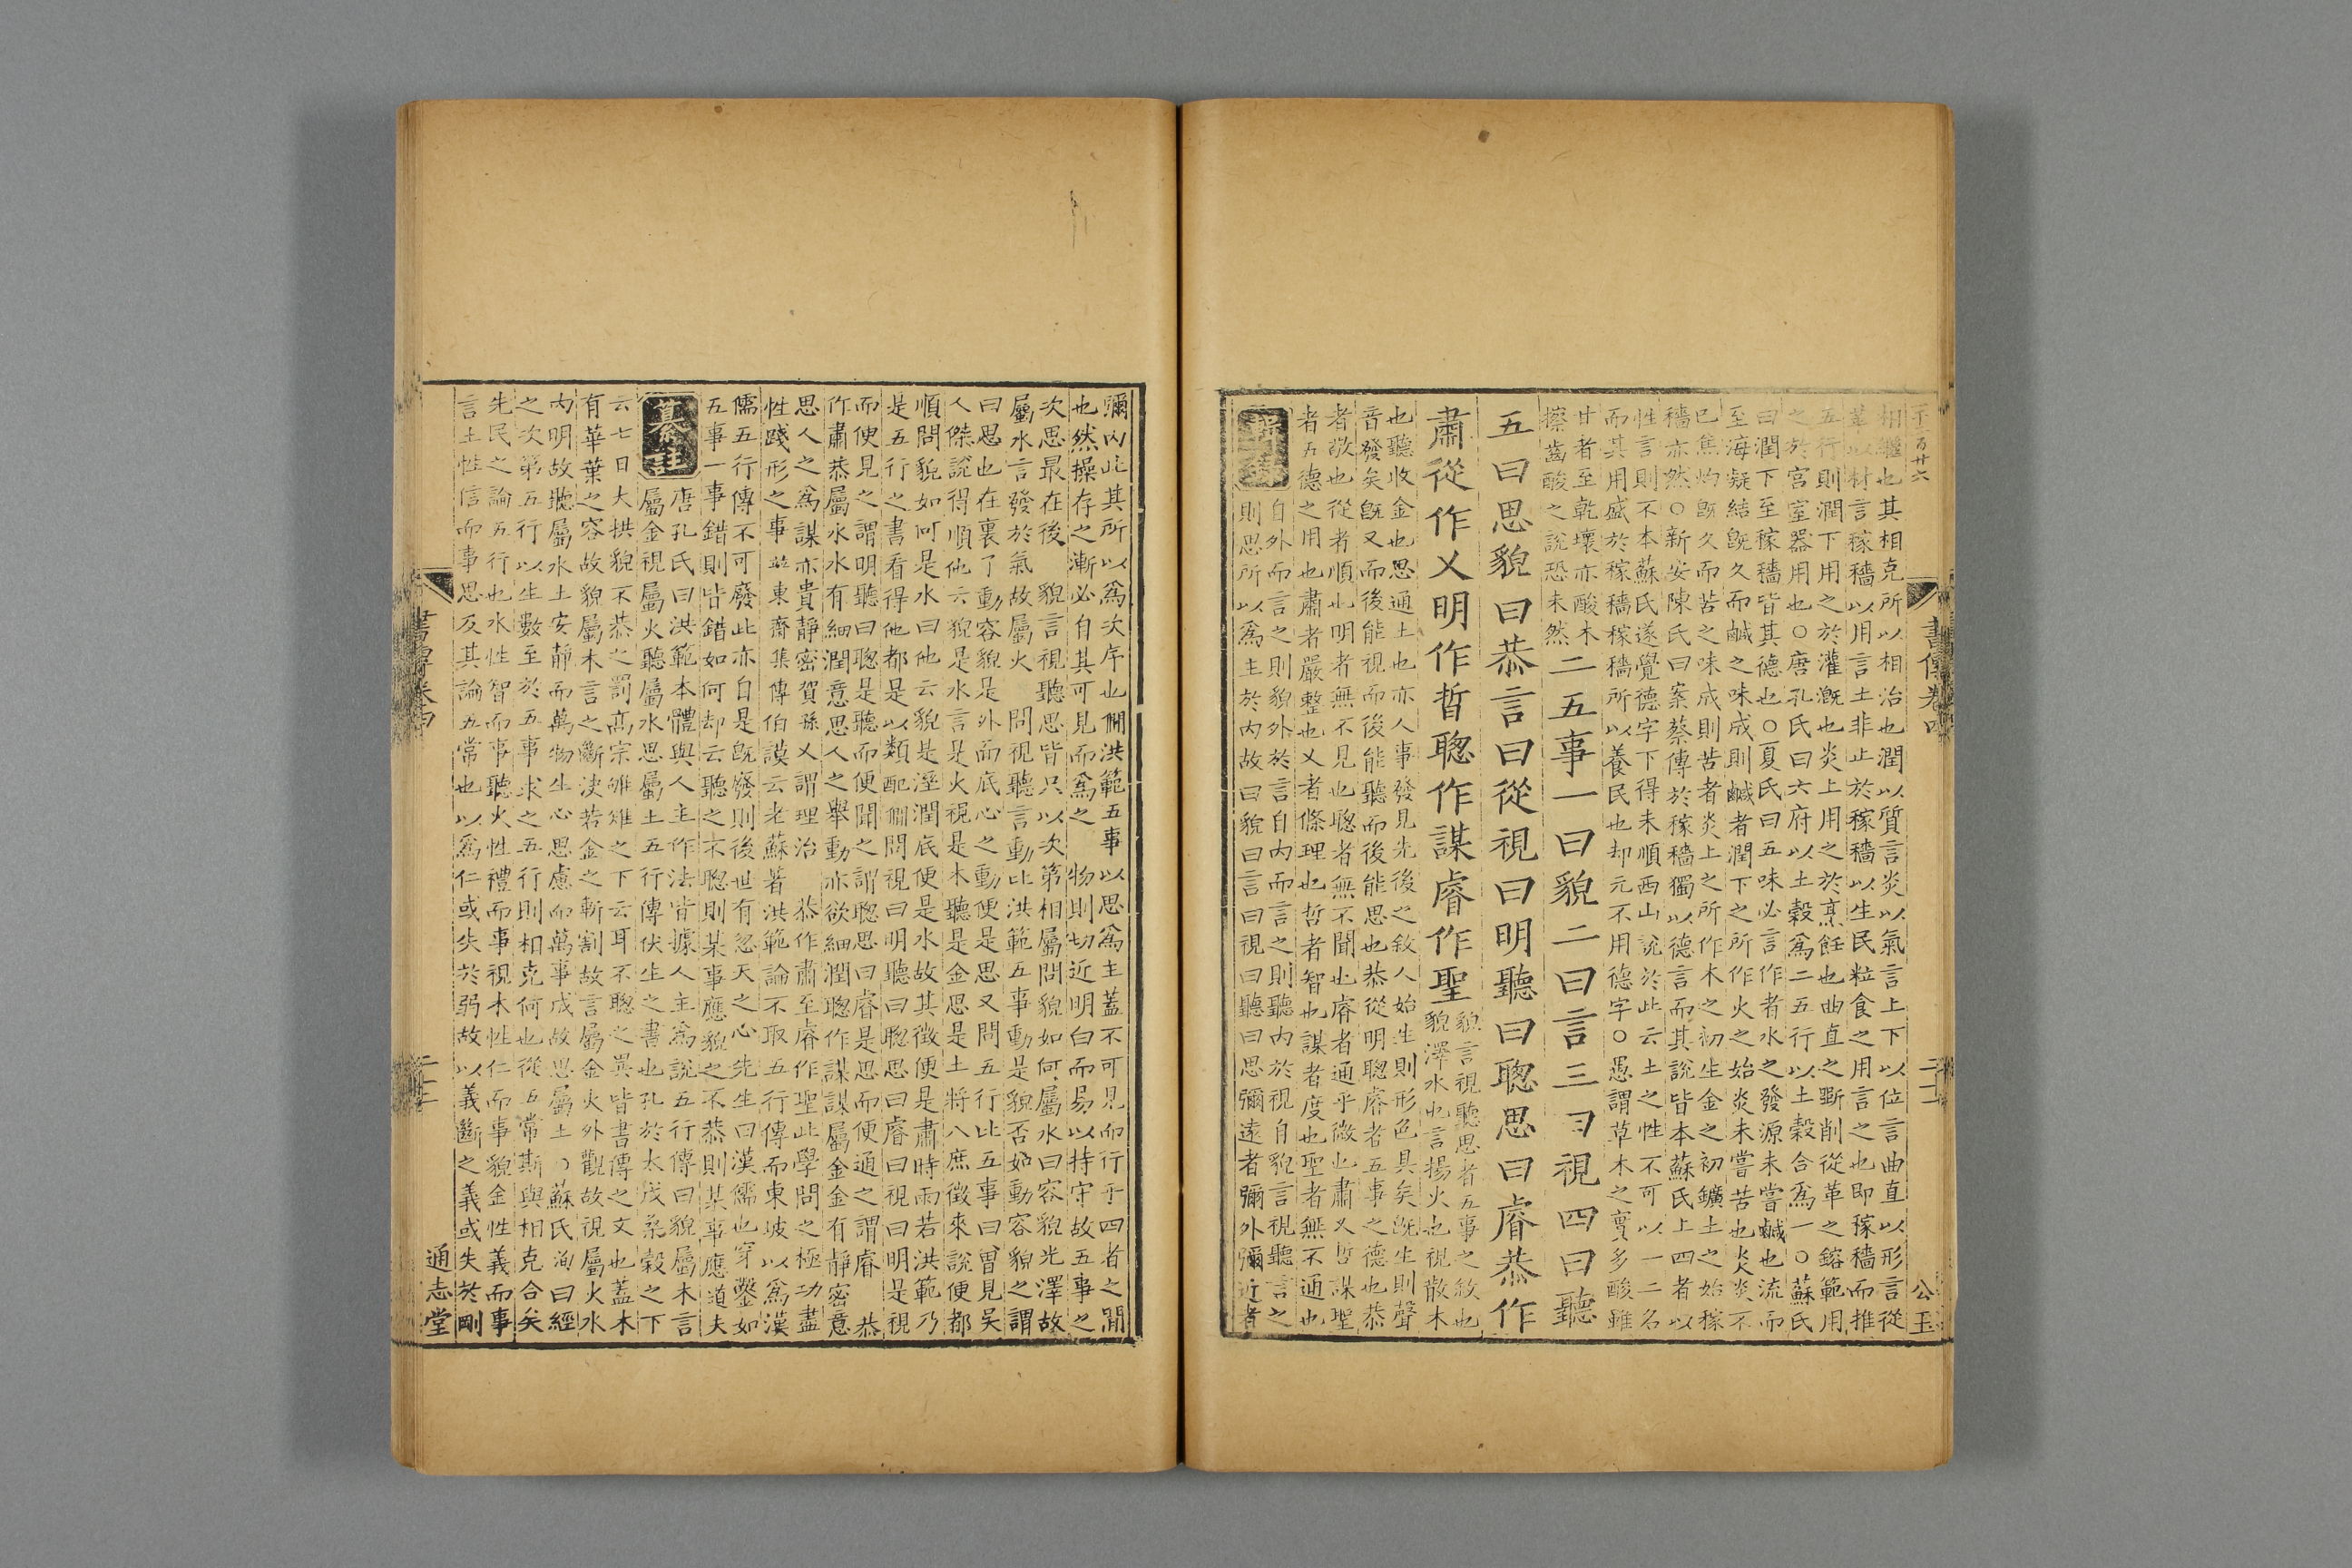 相繼也其相克所以相治也潤以質言炎以氣言上下以位言曲直以形言從
革以材言稼穡以用言土非止於稼穡以生民粒食之用言之也即稼穡而推
五行則潤下用之於灌溉也炎上用之於烹飪也曲直之斲削從革之鎔範用
之於宮室器用也○唐孔氏曰六府以土穀爲二五行以土穀合爲一○蘇氏
曰潤下至稼穡皆其德也○夏氏曰五味必言作者水之發源未嘗鹹也流而
至海凝結旣久而鹹之味成則鹹者潤下之所作火之始炎未嘗苦也炎炎不
已焦灼旣久而苦之味成則苦者炎上之所作木之初生金之初鑛土之始稼
穡亦然○新安陳氏曰案蔡傳於稼穡獨以德言而其說皆本蘇氏上四者以
性言則不本蘇氏遂覺德字下得未順西山說於此云土之性不可以一二名
而其用盛於稼穡稼穡所以養民也却元不用德字○愚謂草木之實多酸雖
甘者至乾壞亦酸木
擦齒酸之說恐未然
二五事一曰貌二曰言三曰視四曰聽
五曰思貌曰恭言曰從視曰明聽曰聰思曰睿恭作
肅從作乂明作晢聰作謀睿作聖
貌言視聽思者五事之敘也
貌澤水也言揚火也視散木
也聽收金也思通土也亦人事發見先後之敘人始生則形色具矣旣生則聲
音發矣旣又而後能視而後能聽而後能思也恭從明聰睿者五事之德也恭
者敬也從者順也明者無不見也聰者無不聞也睿者通乎微也肅乂哲謀聖
者五德之用也肅者嚴整也乂者條理也哲者智也謀者度也聖者無不通也
自外而言之則貌外於言自內而言之則聽內於視自貌言視聽言之
則思所以爲主於內故曰貌曰言曰視曰聽曰思彌遠者彌外彌近者
書傳卷四
二十二
公玉
彌內此其所以爲次序也㒓洪範五事以思爲主蓋不可見而行乎四者之間
也然操存之漸必自其可見而爲之 物則切近明白而易以持守故五事之
次思最在後 貌言視聽思皆只以次第相屬問貌如何屬水曰容貌光澤故
屬水言發於氣故屬火 問視聽言動比洪範五事動是貌否如動容貌之謂
曰思也在裏了動容貌是外面底心之動便是思又問五行比五事曰曾見吳
人傑說得順他云貌是水言是火視是木聽是金思是土將八庶徵來說便都
順問貌如何是水曰他云貌是溼潤底便是水故其徵便是肅時雨若洪範乃
是五行之書看得他都是以類配㒓問視曰明聽曰聰思曰睿曰視曰明是視
而便見之謂明聽曰聰是聽而便聞之謂聰思曰睿是思而便通之謂睿 恭
作肅恭屬水水有細潤意思人之舉動亦欲細潤聰作謀謀屬金金有靜密意
思人之爲謀亦貴靜密賀孫又謂理治 恭作肅至睿作聖此學問之極功盡
性踐形之事並東齋集傳伯謨云老蘇著洪範論不取五行傳而東坡以爲漢
儒五行傳不可廢此亦自是旣廢則後世有忽天之心先生曰漢儒也穿鑿如
五事一事錯則皆錯如何却云聽之不聰則某事應貌之不恭則某事應道夫
纂註
唐孔氏曰洪範本體與人主作法皆據人主爲說五行傳曰貌屬木言
屬金視屬火聽屬水思屬土五行傳伏生之書也孔於太戊桑穀之下
云七日大拱貌不恭之罰高宗雊雉之下云耳不聰之異皆書傳之文也蓋木
有華葉之容故貌屬木言之斷決若金之斬割故言屬金火外觀故視屬火水
內明故聽屬水土安靜而萬物生心思慮而萬事成故思屬土○蘇氏洵曰經
之次第五行以生數至於五事求之五行則相克何也從五常斯與相克合矣
先民之論五行也水性智而事聽火性禮而事視木性仁而事貌金性義而事
言土性信而事思及其論五常也以爲仁或失於弱故以義斷之義或失於剛
書傳卷四
二十二
通志堂